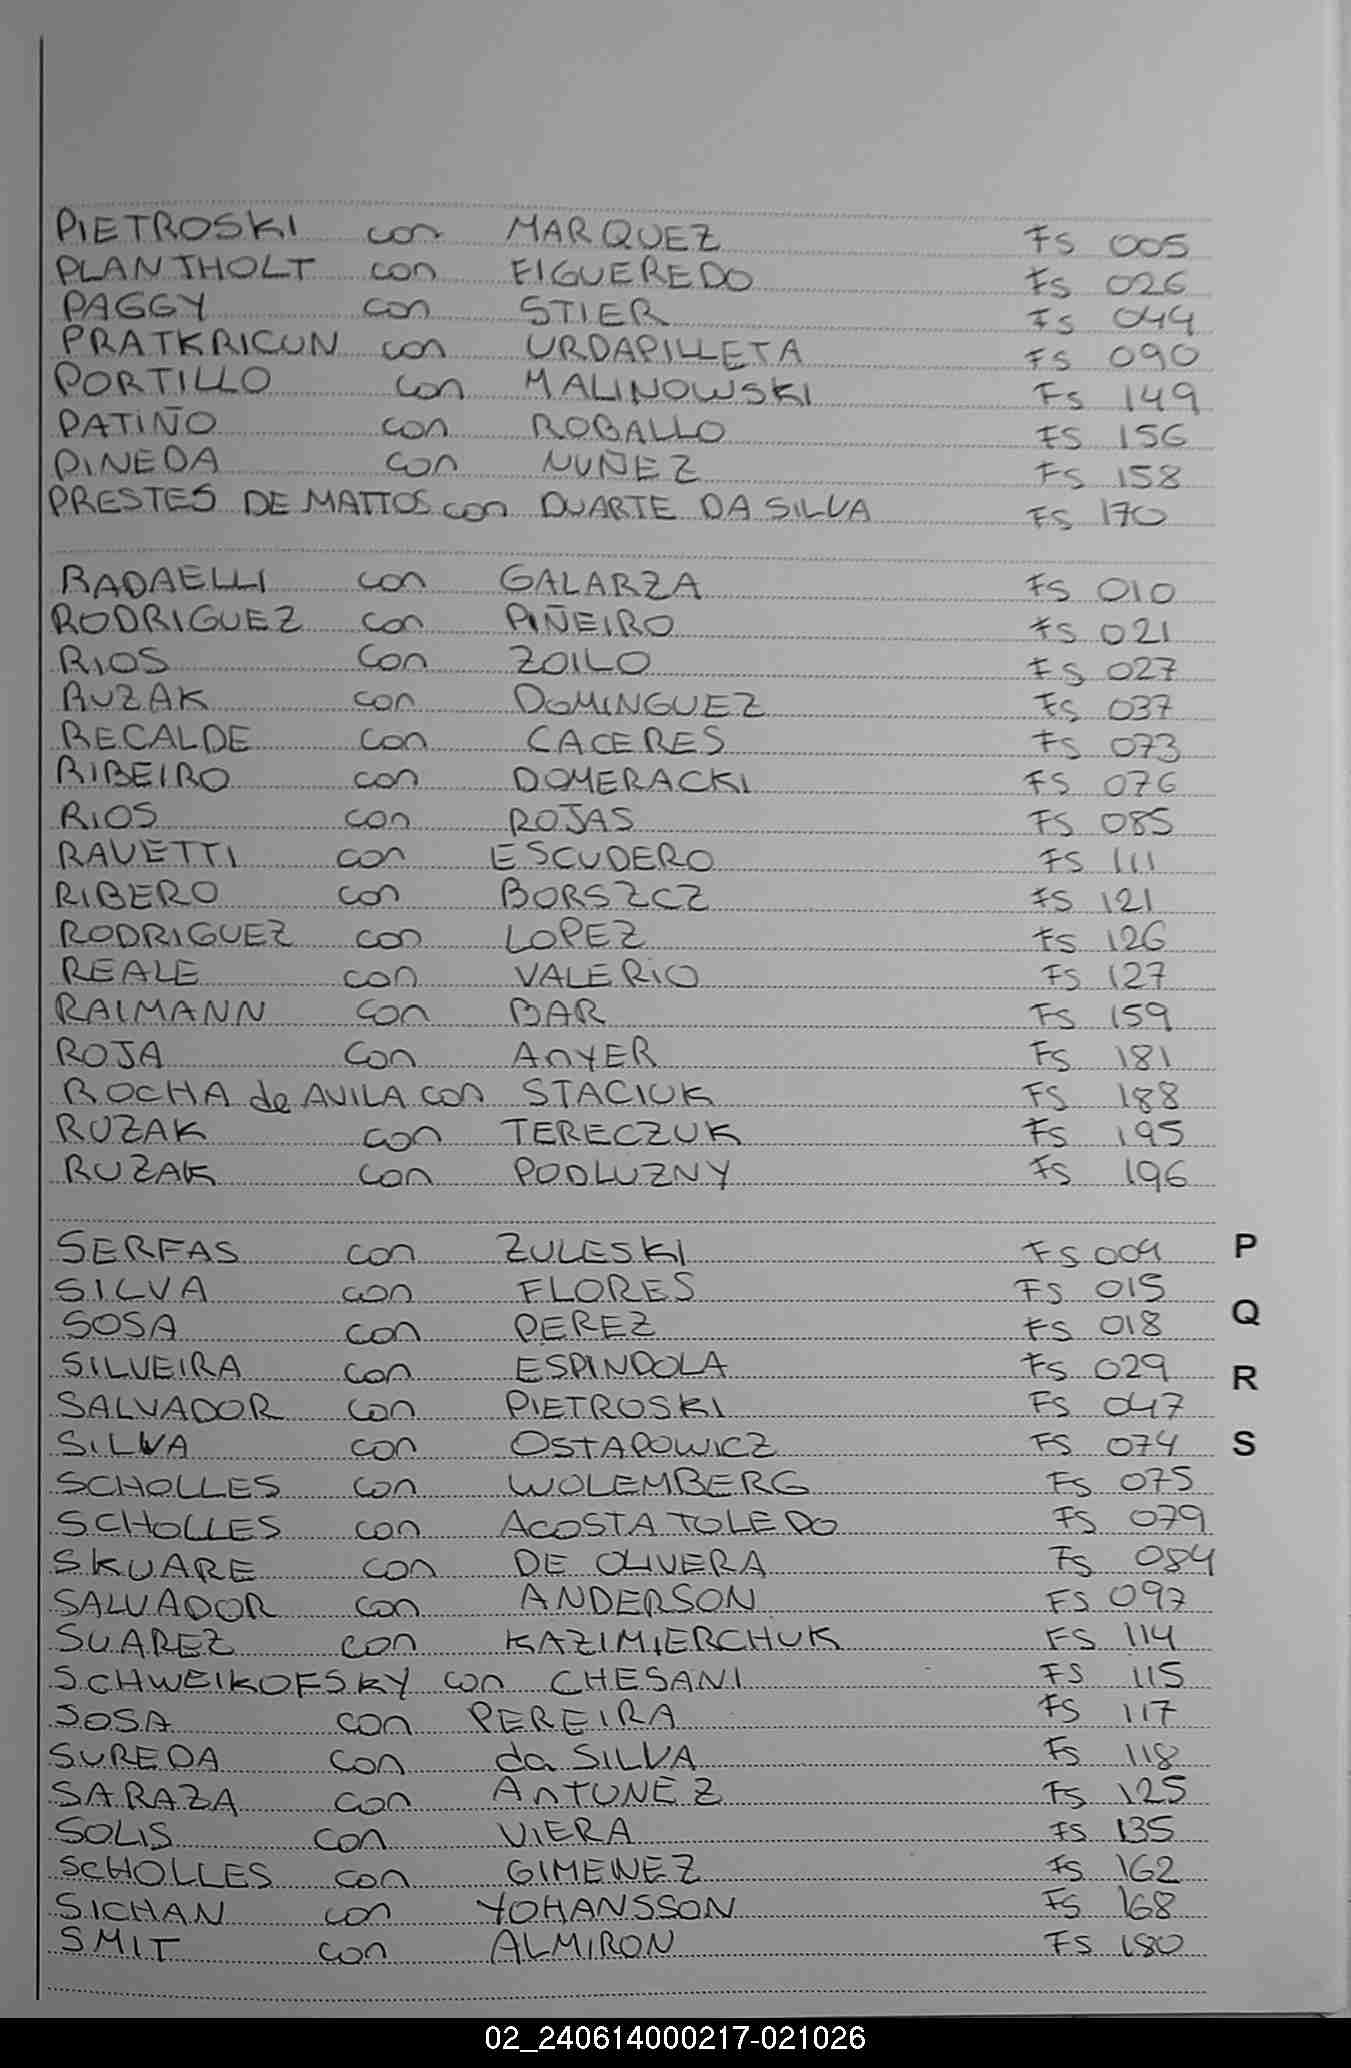 PIETROSKI con MARQUEZ FS 005
PLANTHOLT con FIGUEREDO FS 026
PAGGY con STIER FS 044
PRATKRICUN con URDAPILLETA FS 090
PORTILLO con MALINOWSKI FS 149
PATIÑO con ROBALLO FS 156
PINEDA con NUÑEZ FS 158
PRESTES DE MATTOS con DUARTE DA SILVA FS 170
RADAELLI con GALARZA FS 010
RODRIGUEZ con PIÑEIRO FS 021
RIOS con ZOILO FS 027
RUZAK con DOMINGUEZ FS 037
RECALDE con CACERES FS 073
RIBEIRO con DOMERACKI FS 076
RIOS con ROJAS FS 085
RAVETTI con ESCUDERO FS 111
RIBERO con BORSZCZ FS 121
RODRIGUEZ con LOPEZ FS 126
REALE con VALERIO FS 127
RAIMANN con BAR FS 159
ROJA con ANYER FS 181
ROCHA de AVILA con STACIUK FS 188
RUZAK con TERECZUK FS 195
RUZAK con PODLUZNY FS 196
SERFAS con ZULESKI FS 004 P
SILVA con FLORES FS 015
SOSA con PEREZ FS 018 Q
SILVEIRA con ESPINDOLA FS 029 R
SALVADOR con PIETROSKI FS 047
SILVA con OSTAPOWICZ FS 074 S
SCHOLLES con WOLEMBERG FS 075
SCHOLLES con ACOSTA TOLEDO FS 079
SKUARE con DE OLIVERA FS 084
SALVADOR con ANDERSON FS 097
SUAREZ con KAZIMIERCHUK FS 114
SCHWEIKOFSKY con CHESANI FS 115
SOSA con PEREIRA FS 117
SUREDA con da SILVA FS 118
SARAZA con ANTUNEZ FS 125
SOLIS con VIERA FS 135
SCHOLLES con GIMENEZ FS 162
SICHAN con YOHANSSON FS 168
SMIT con ALMIRON FS 180
02_240614000217-021026